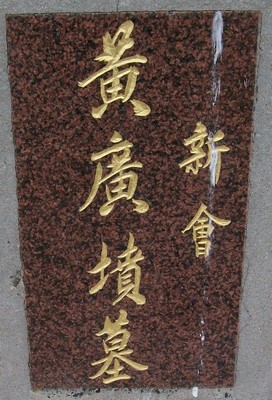 新會
黃廣墳墓